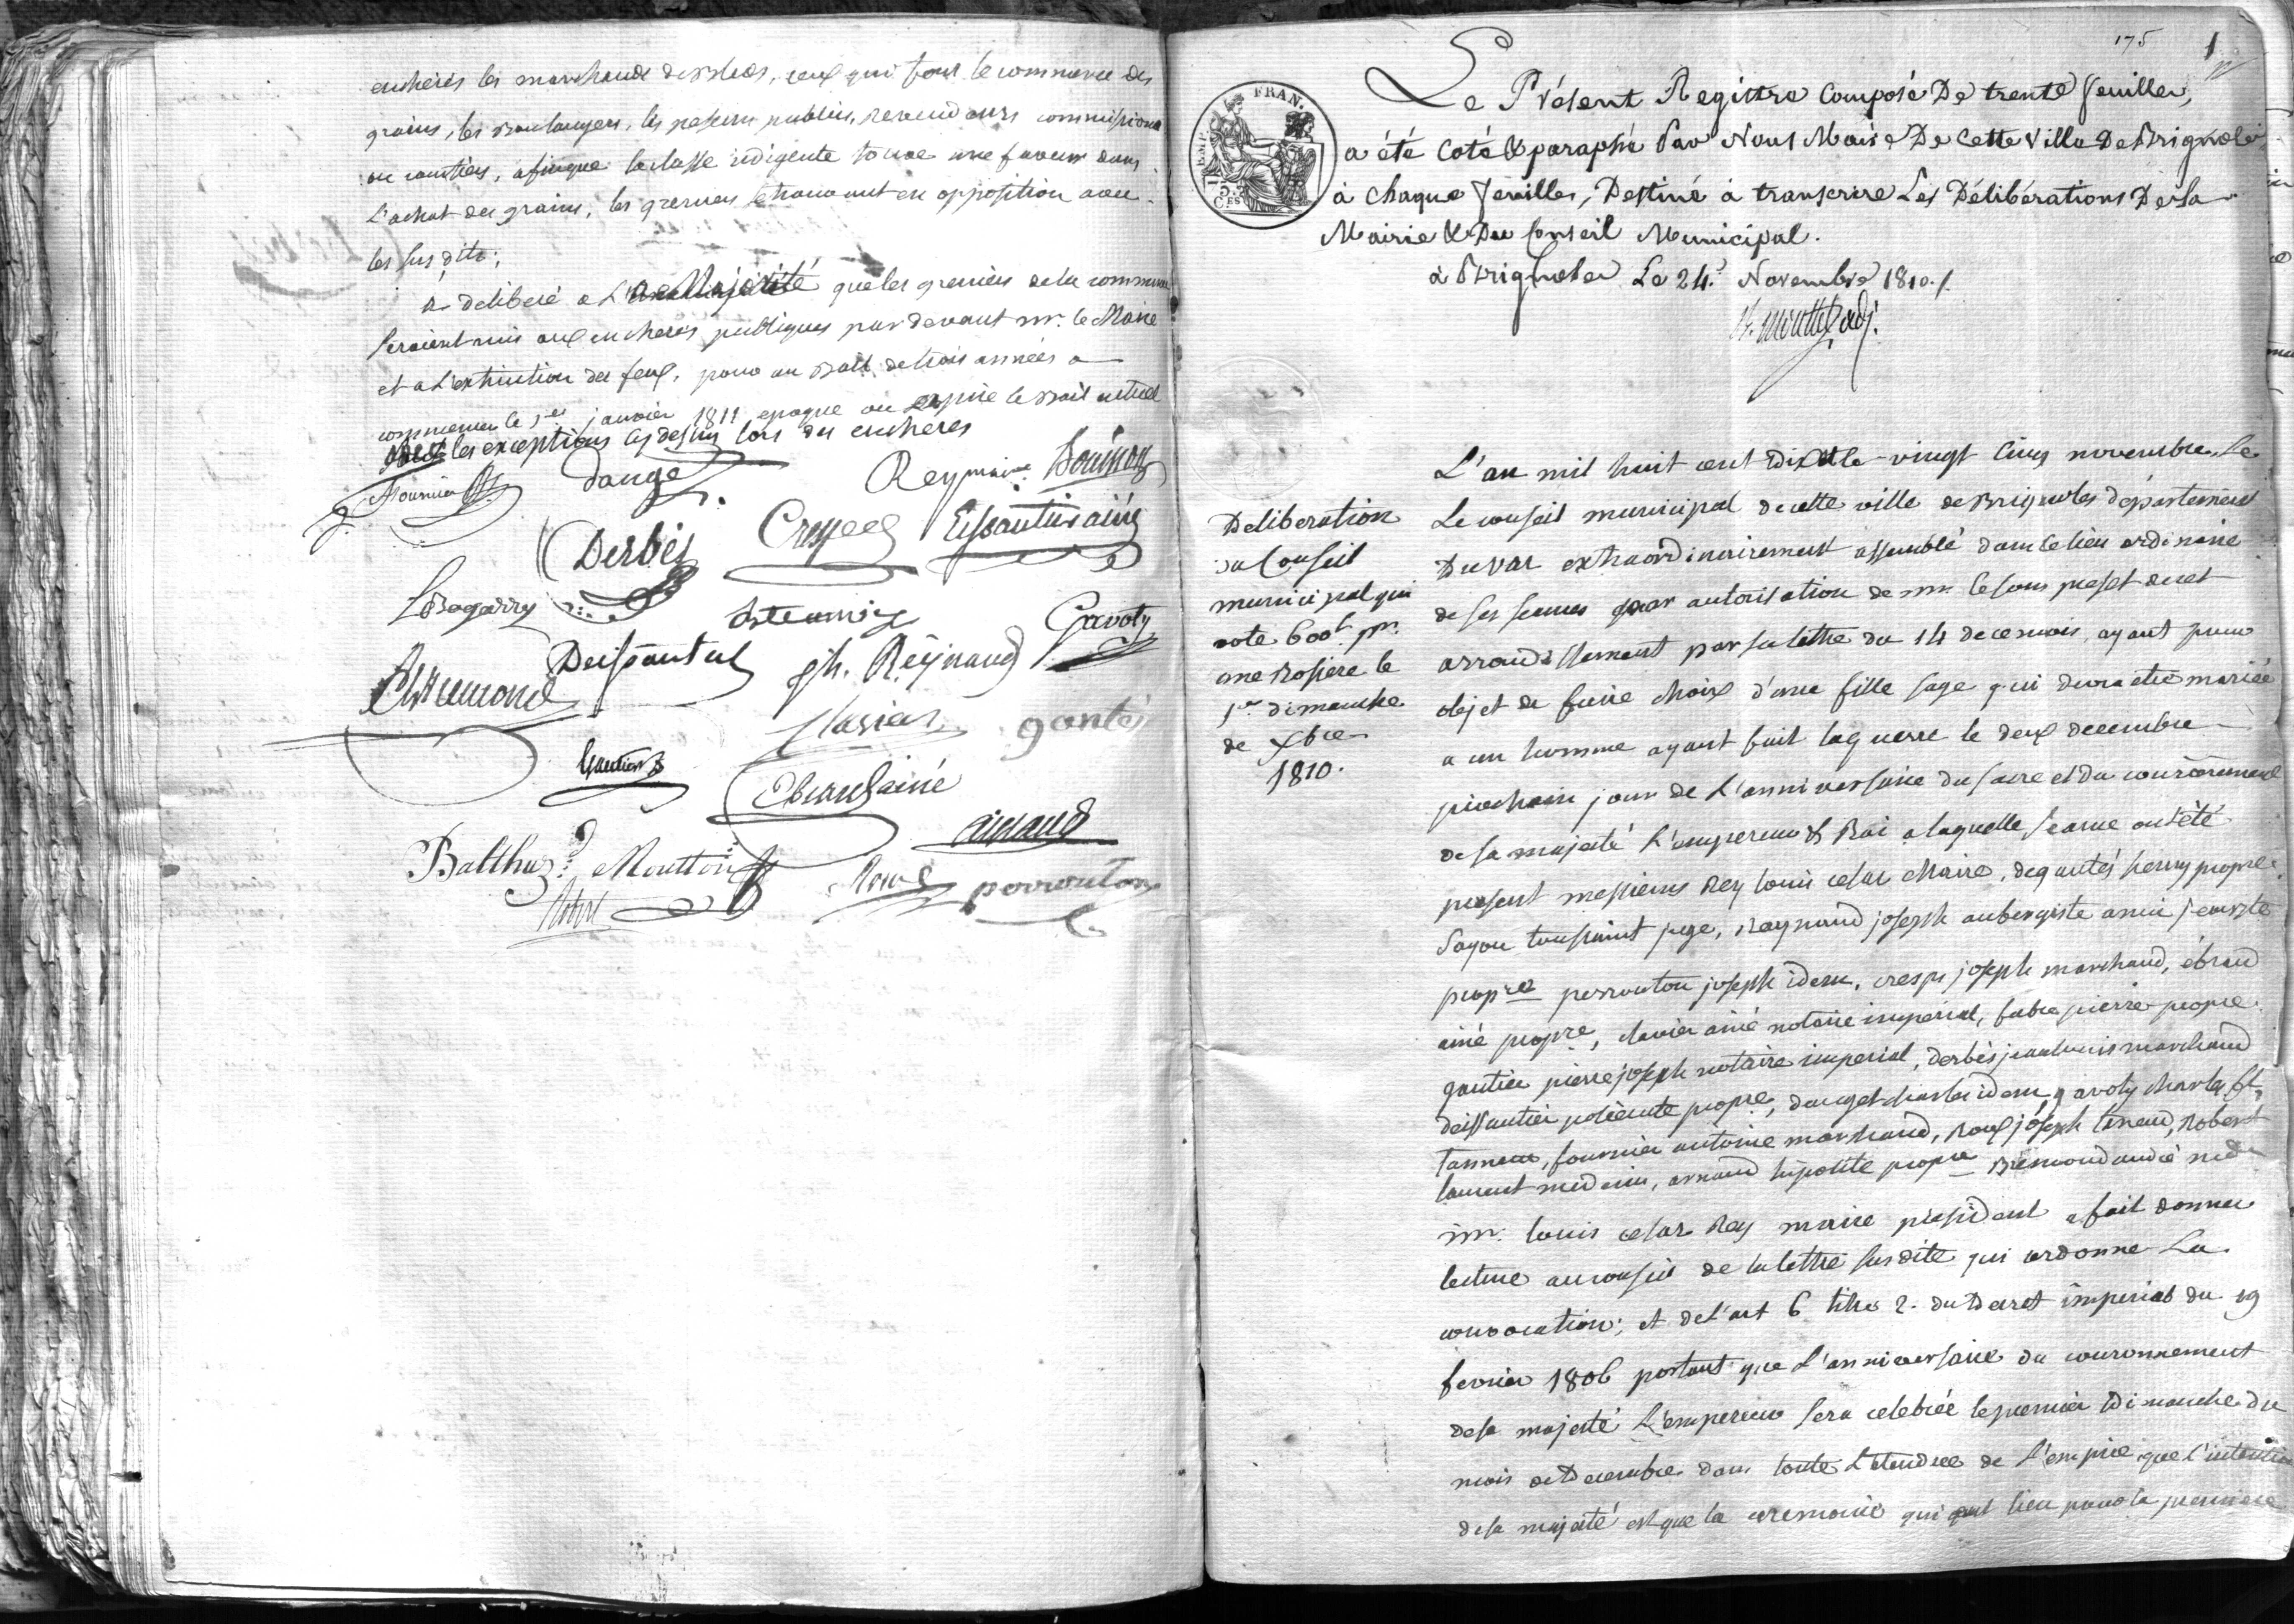 encheres les marchands de bleds, ceux qui font le commerce des
grains, les boulangers, les peseurs publics, revendeurs commissionn
ou courtiers, afin que la classe indigente trouve une faveur dans
L'achat des grains, les greniers se trouvant en opposition avec
les susdits;
a deliberé a L' Majorité que les greniers de la commune
seraient mis aux encheres publiques pardevant mr. le Maire
et a L'extinction des feux, pour un bail de trois années a
commencer le 1er janvier 1811 epoque ou expire le bail actuel
les exceptions cy dessus lors des encheres
fournier
Danget
Rey maire
Derbès
Crespe
aîné
LBagarry
Gavoty
Bremond
Deissautier
jh. Reynaud
Clavier
gantés
Gautier
Ebraud ainé
arnaud
Balthazd. Moutton
Robert
Roux
perrouton
175
1
Le Présent Registre Composé De trente feuilles,
a été Coté & paraphé Par Nous Maire De Cette Ville De Brignoles
à Chaque feuilles, Destiné à transcrire Les Délibérations De la
Mairie & Du Conseil Municipal.
à Brignoles Le 24. Novembre 1810./.
adj.
FRAN.
EMP.
Deliberation
du Conseil
municipal qui
vote 600f pr.
une Rosiere le
1er. dimanche
de Xbre
1810.
L'an mil huit cent Dix & le vingt Cinq novembre Le
Le conseil municipal de cette ville de Brignoles département
Du Var extraordinairement assemblé dans le lieu ordinaire
de ses seances par autorisation de mr. le sous prefet de cet
arrondissement par sa lettre du 14 de ce mois, ayant pour
objet de faire choix d'une fille sage qui devra etre mariée
a un homme ayant fait la guerre le deux decembre
prochain jour de L'anniversaire du sacre et du couronnement
de sa majesté L'empereur & Roi a laquelle seance ont été
present messieurs Rey louis cesar Maire, de gantés henry propre.
Fayou toussaint juge, Raynaud joseph aubergiste
propre perrouton joseph idem, crespe joseph marchand, ébraud
ainé propre, clavier ainé notaire imperial, fabre pierre propre.
gautier pierre joseph notaire imperial, derbès jean louis marchand
deissautier propre, danget charles idem, gavoty charles
tanneur, fournier antoine marchand, roux joseph Robert
laurent medecin, arnaud hipolite propre Bremond andré
mr. louis cesar Rey maire président a fait donner
lecture au conseil de la lettre susdite qui ordonne La
convocation; et de L'art 6 titre 2. du Decret imperial du 19
fevrier 1806 portant que L'anniversaire du couronnement
de sa majesté L'empereur sera celebrée le premier Dimanche Du
mois de Decembre dans toute L'etendue de L'empire que l'intention
de sa majesté est que la ceremonie qui eut lieu pour la premiere